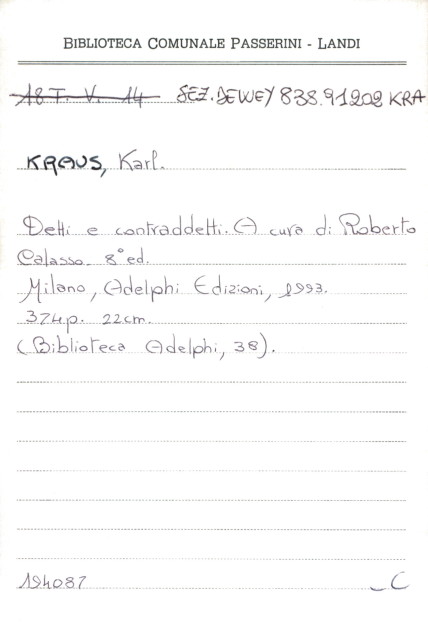 BIBLIOTECA COMUNALE PASSERINI - LANDI
18 T. V. 14 SEZ. DEWEY 838.91202 KRA
KRAUS, Karl.
Detti e contraddetti. A cura di Roberto
Calasso. 8° ed.
Milano, Adelphi Edizioni, 1993.
374p. 22cm.
(Biblioteca Adelphi, 38).
194087 C